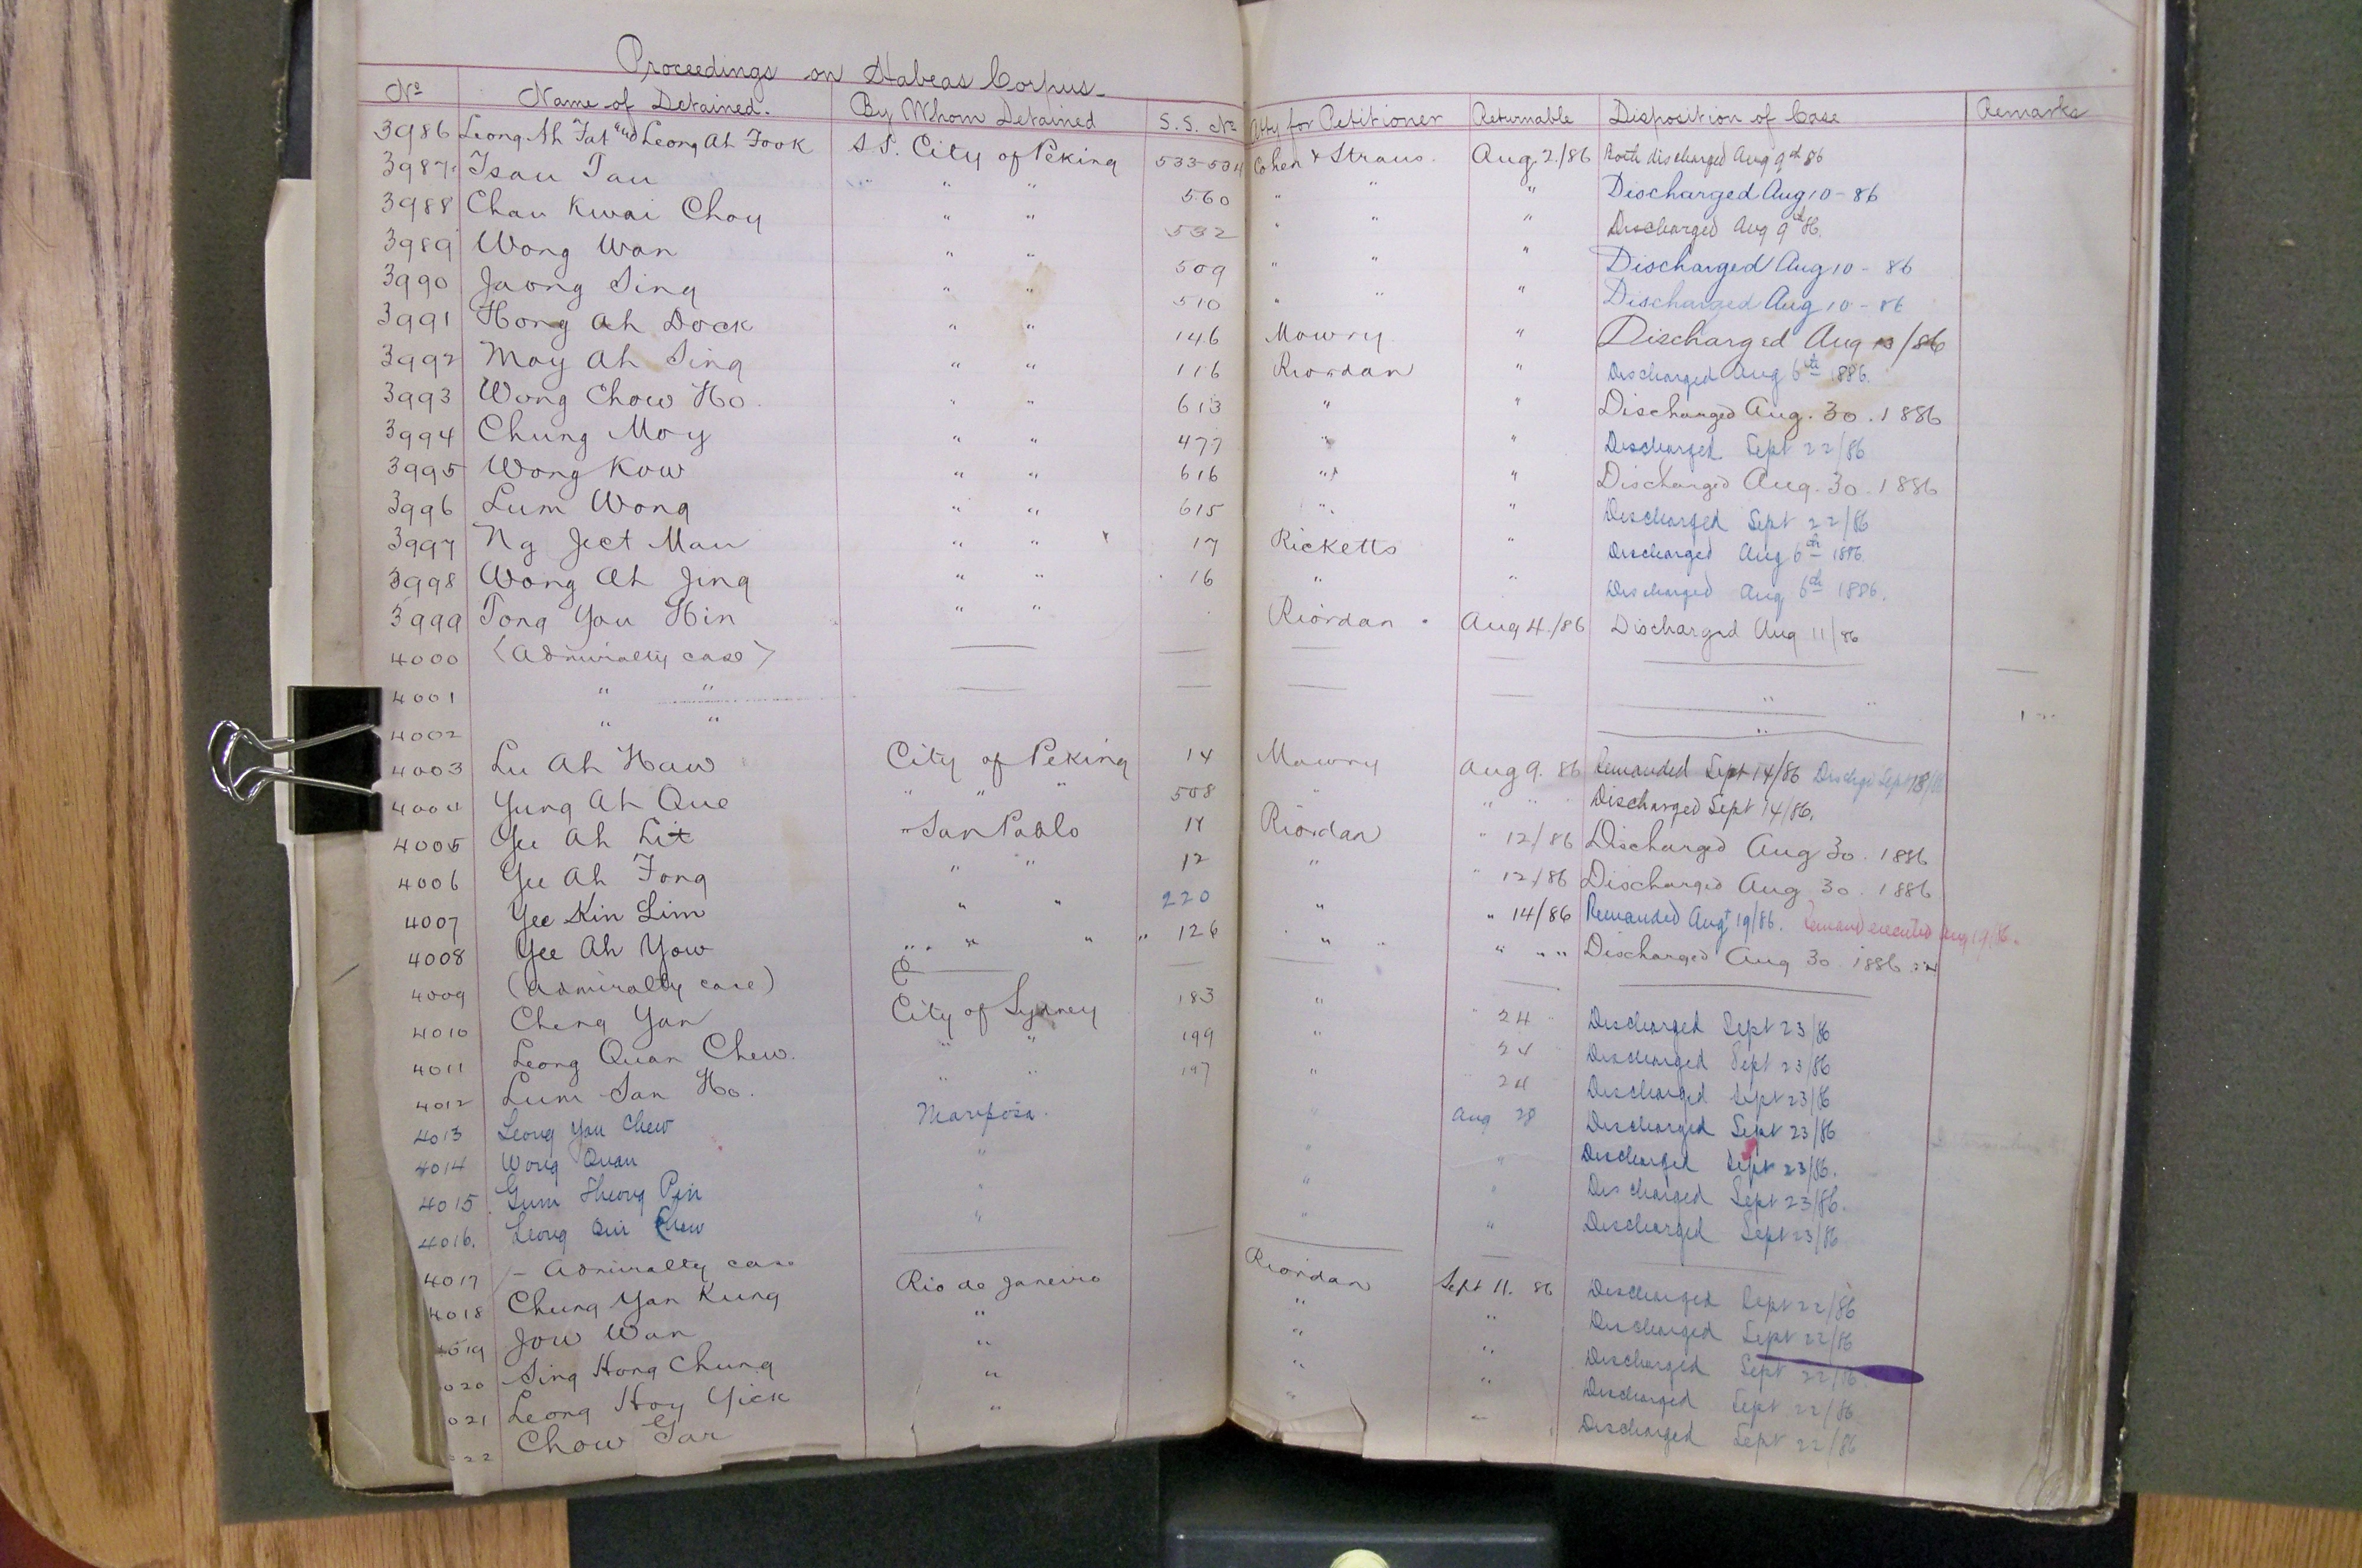 Proceedings on Habeas Corpus.
No Name of Detained. By Whom Detained S.S. No Atty for Petitioner Returnable Disposition of Case Remarks
3986 Leong Ah Fat and Leong Ah Fook S.S. City of Peking 533-534 Cohen & Straus. Aug. 2./86 Both discharged Aug 9th 86
3987 Tsau Tau " " " 560 " " " Discharged Aug 10-86
3988 Chau Kwai Choy " " 532 " " " Discharged Aug 9th 86.
3989 Wong Wan " " 509 " " " Discharged Aug 10-86
3990 Jaong Sing " " 510 " " " Discharged Aug 10-86
3991 Hong Ah Dock " " 146 Mowry " Discharged Aug /86
3992 May Ah Sing " " 116 Riordan " Discharged Aug 6th 1886.
3993 Wong Chow Ho. " " 613 " " Discharged Aug. 30. 1886
3994 Chung Moy " " 477 " " Discharged Sept 22/86
3995 Wong Kow " " 616 " " Discharged Aug. 30. 1886
3996 Lum Wong " " 615 " " Discharged Sept 22/86
3997 Ng Ject Mau " " 17 Ricketts " Discharged Aug 6th 1886.
3998 Wong Ah Jing " " 16 " " Discharged Aug 6th 1886.
3999 Tong You Hin " " Riordan Aug 4./86 Discharged Aug 11/86
4000 (Admiralty case)
4001 " " " "
4002 " " "
4003 Lu Ah Haw City of Peking 14 Mowry Aug 9. 86 Remanded Sept 14/86 Dischgd Sept 18/86
4004 Yung Ah Que " " " 508 " " " Discharged Sept 14/86.
4005 Yee Ah Lit "San Pablo 14 Riordan " 12/86 Discharged Aug 30. 1886
4006 Yee Ah Fong " " 12 " " 12/86 Discharged Aug 30. 1886
4007 Yee Kin Lim " " 220 " " 14/86 Remanded Augt 19/86. Remand executed Aug 19/86.
4008 Yee Ah Yow " " " " 126 " " " " " Discharged Aug 30. 1886
4009 (Admiralty case)
4010 Cheng Yan City of Sydney 183 " " 24 " Discharged Sept 23/86
4011 Leong Quan Chew. " " 199 " 24 Discharged Sept 23/86
4012 Lum San Ho. " " 197 " 24 Discharged Sept 23/86
4013 Leong You Chew Mariposa. " Aug 28 Discharged Sept 23/86
4014 Wong Quan " " " Discharged Sept 23/86.
4015 Gum Pin " " " Discharged Sept 23/86.
4016. Leong Qui Chew " " " Discharged Sept 23/86
4017 - Admiralty case
4018 Chung Yan Kung Rio de Janeiro Riordan Sept 11. 86 Discharged Sept 22/86
4019 Jow Wan " " " Discharged Sept 22/86
020 Sing Hong Chung " " " Discharged Sept 22/86.
021 Leong Hoy Yick " " " Discharged Sept 22/86
22 Chow Gar " " " Discharged Sept 22/86